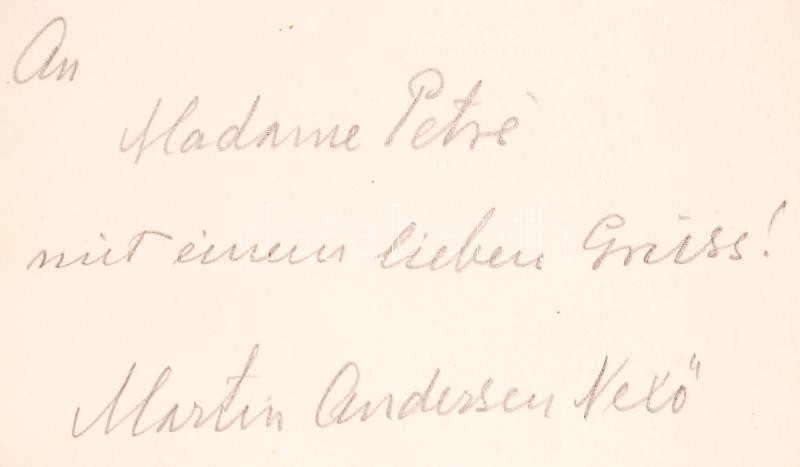 An
Madame Petré
mit einem lieben Gruss!
Martin Andersen Nexö